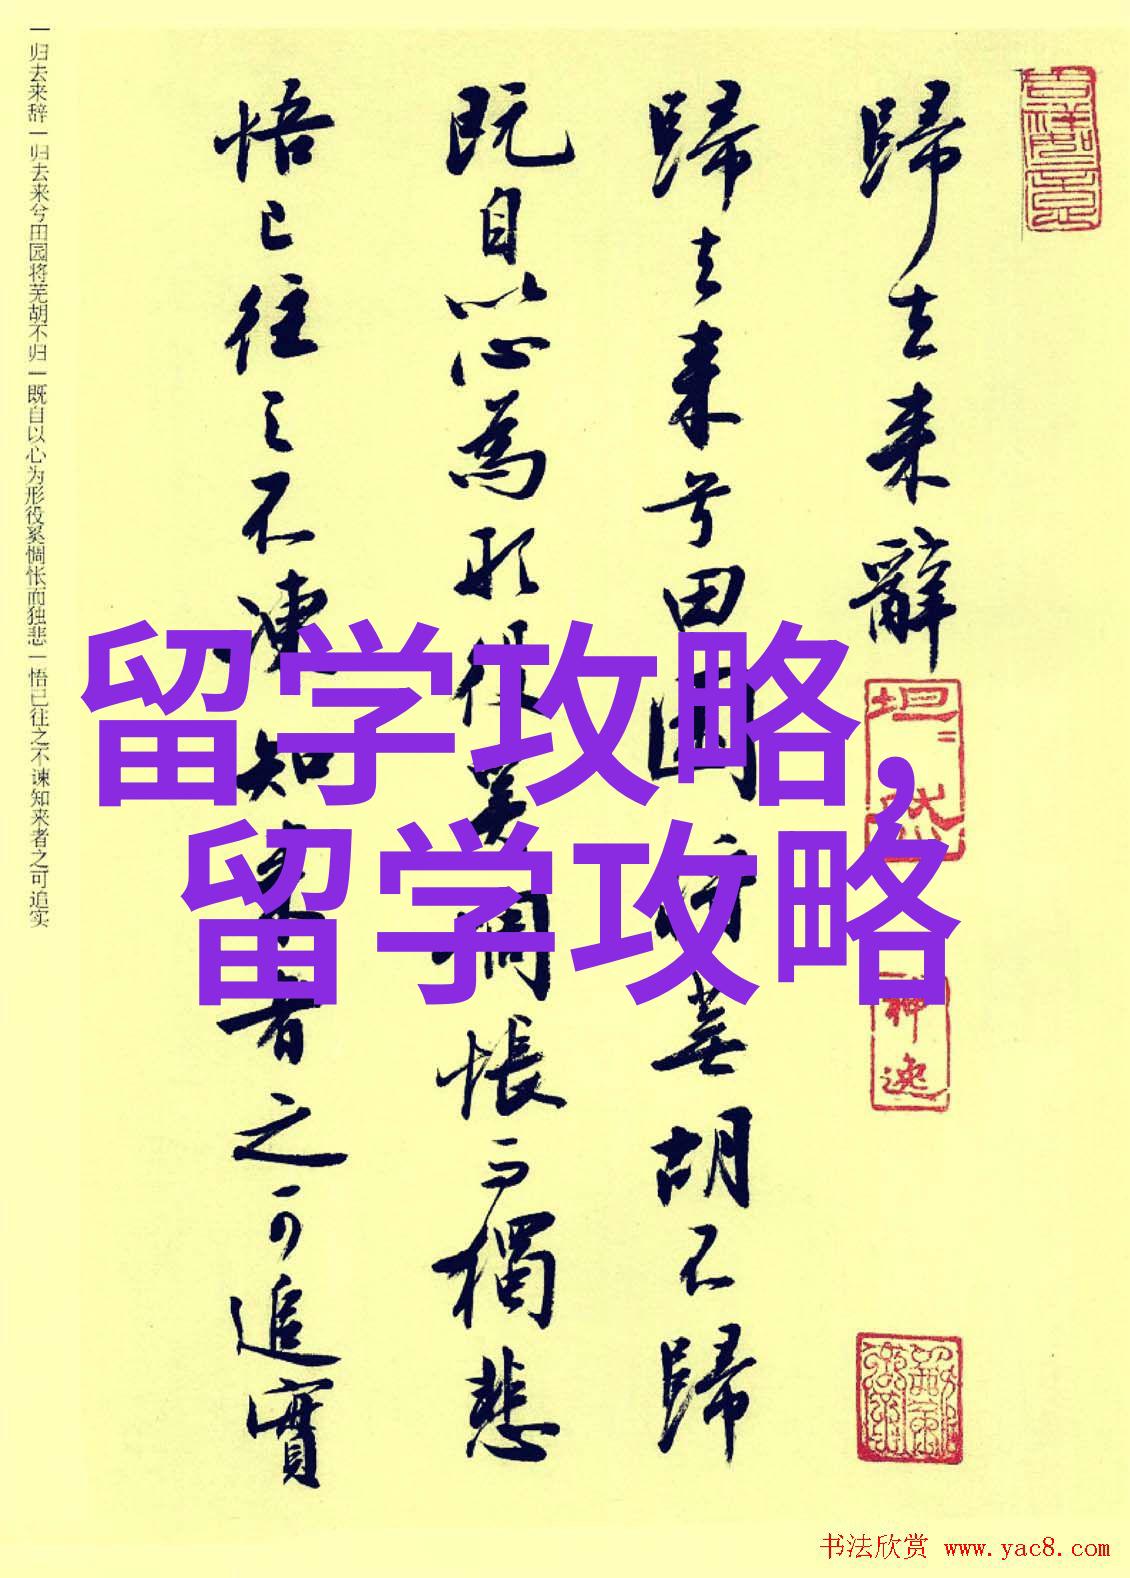 歸去来辭
歸去来兮田園将蕪胡不歸
既自以心為形役奚惆悵而獨悲
悟已往之不諫知来者之可追實
一归去来辞一归去来兮田园将芜胡不归一既自以心为形役奚惆怅而独悲一悟已往之不谏知来者之可追实
留学攻略,
留学攻略
坦然
神逸
书法欣赏 www.yac8.com